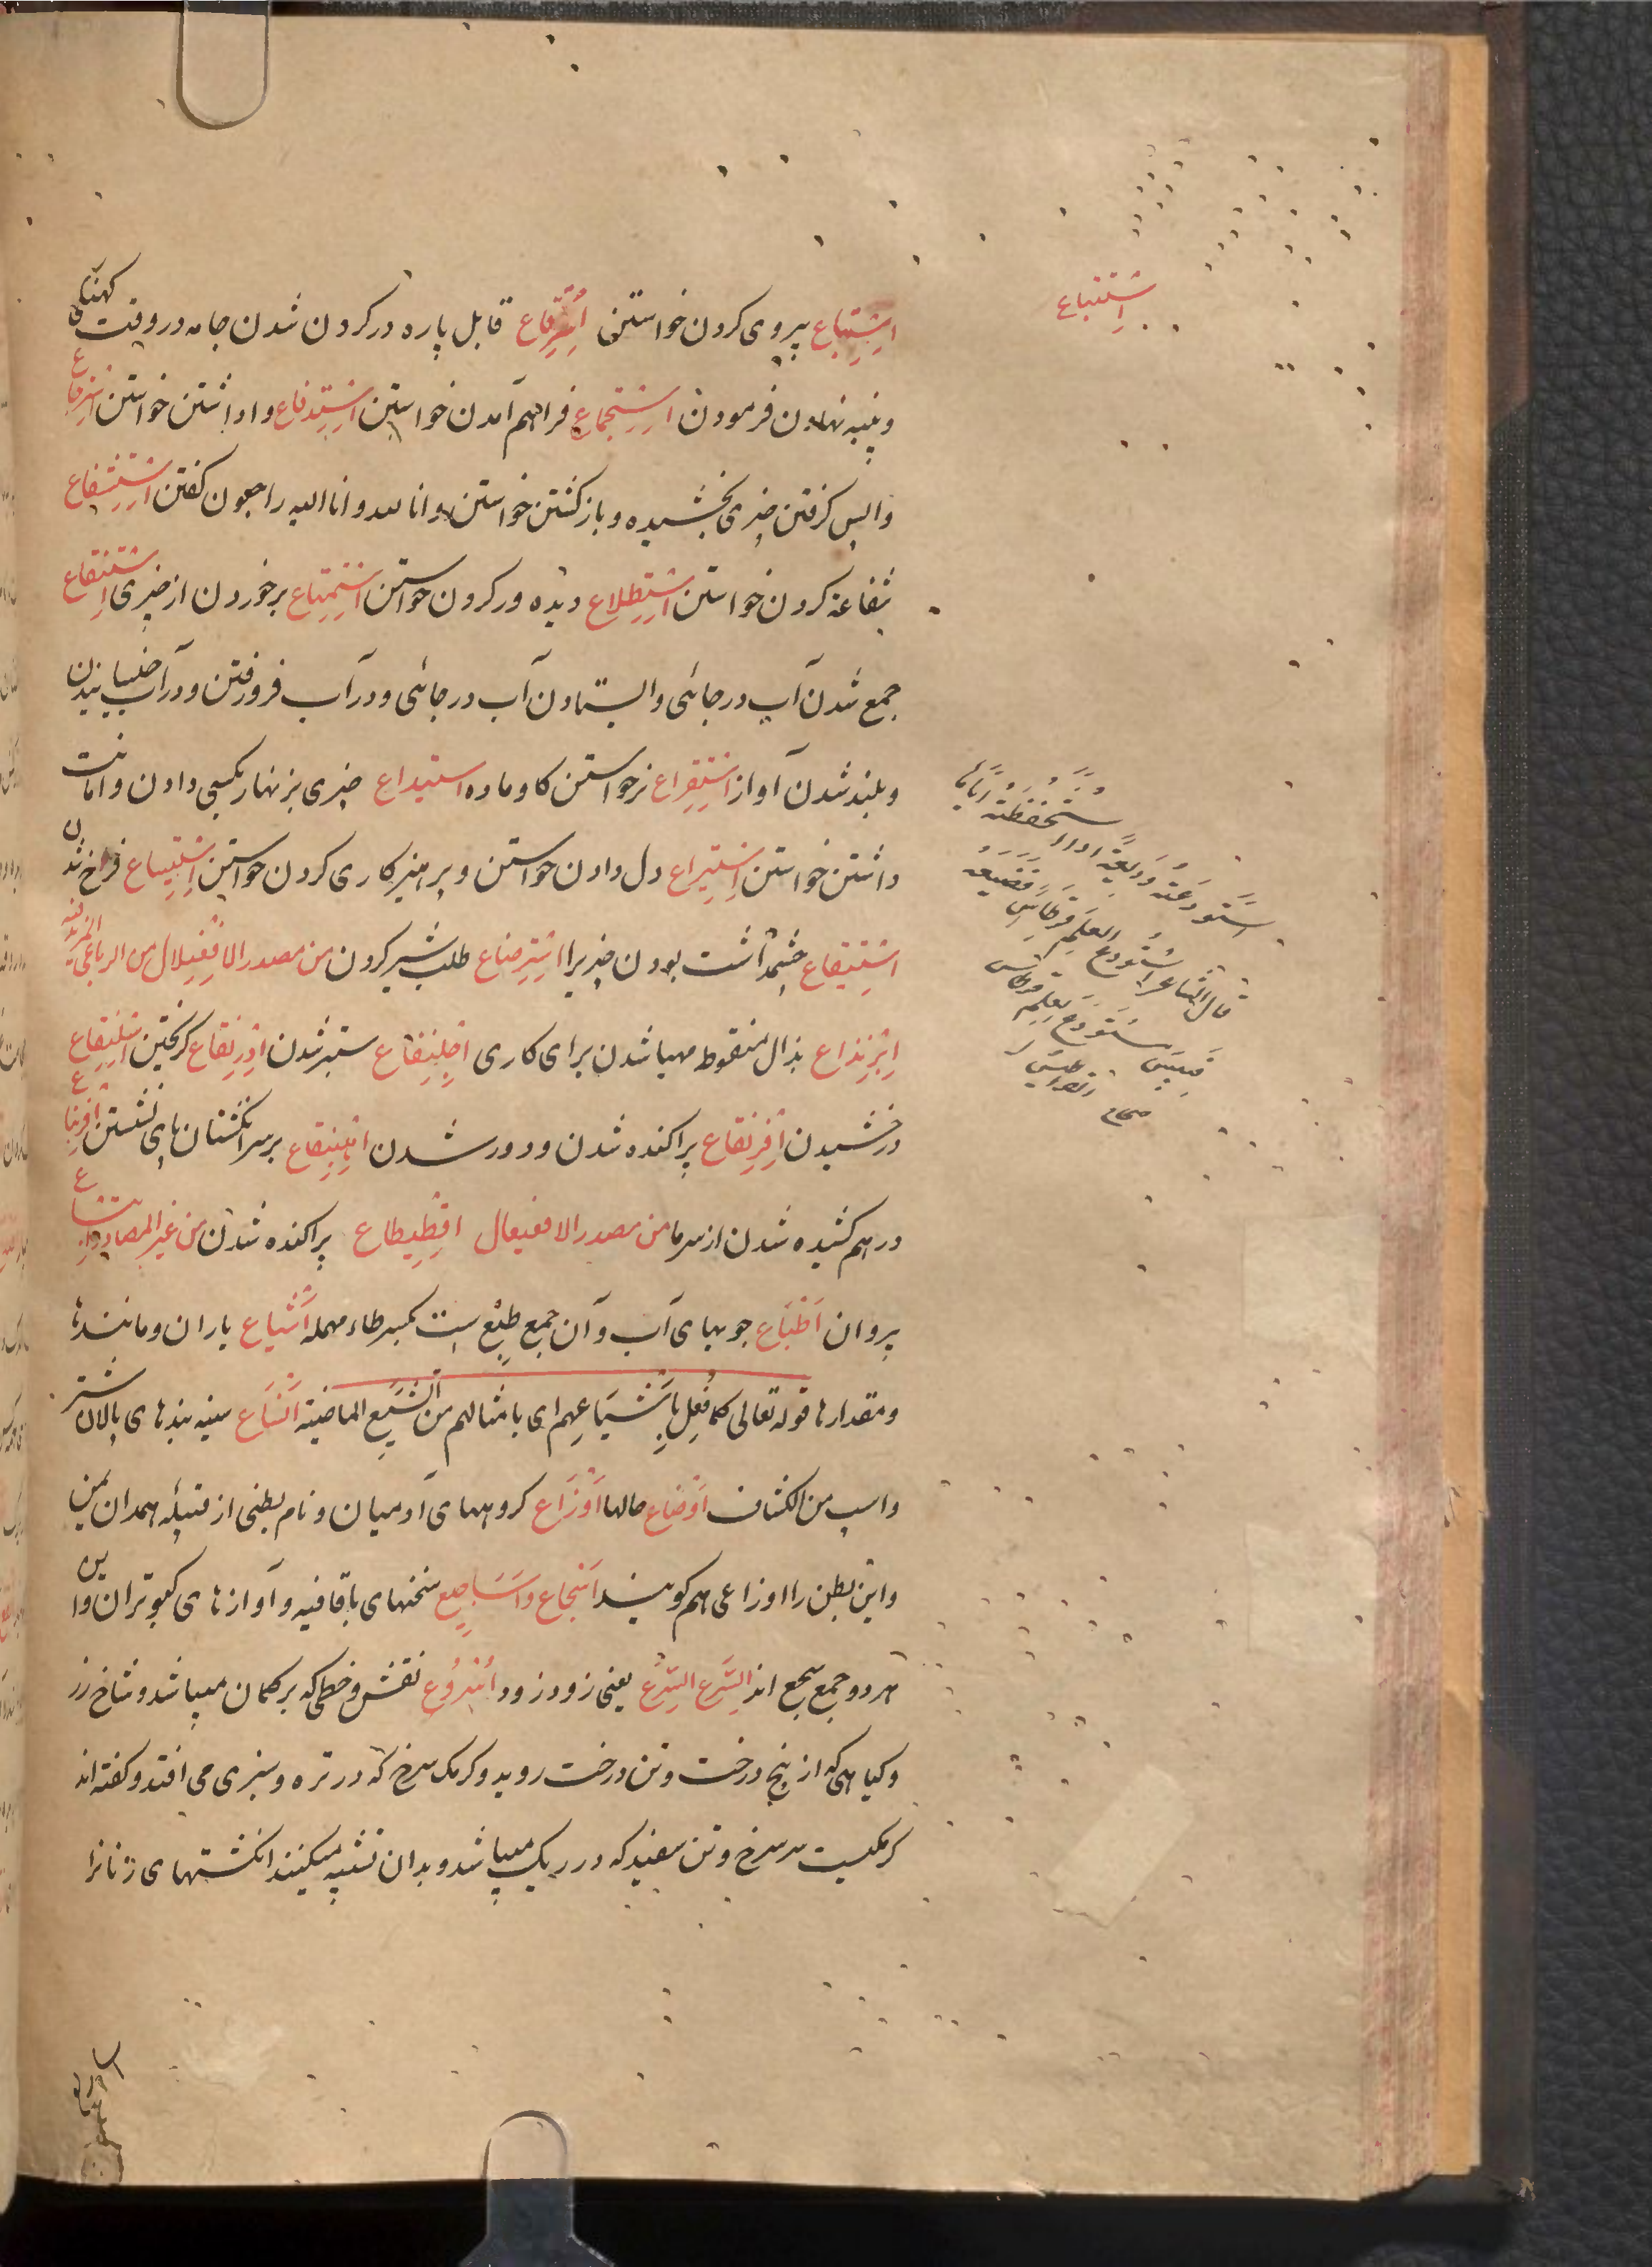 اِسْتِتْباع پیروی کردن خواستن اِسْتِرْقاع قابل پاره در کردن شدن جامه در وقت کهنگی
و پنبه نهادن فرمودن اِسْتِجْماع فراهم آمدن خواستن اِسْتِدْفاع وا داشتن خواستن اِسْتِرْجاع
واپس کرفتن چیزی بخشیده و باز کشتن خواستن و انا لله و انا الیه راجعون کفتن اِسْتِشْفاع
شفاعة کردن خواستن اِسْتِطْلاع دیده ور کردن خواستن اِسْتِمْتاع برخوردن از چیزی اِسْتِنْقاع
جمع شدن آب در جائی و ایستادن آب در جائی و در آب فرو رفتن و در آب خیسانیدن
و بلند شدن آواز اِسْتِقْراع نر خواستن کاو ماده استیداع چیزی بزنهار بکسی دادن و امانت
داشتن خواستن اِسْتیراع دل دادن خواستن و پرهیزکاری کردن خواستن اِسْتیساع فراخ شدن
اِسْتیقاع چشمداشت بودن چیزیرا اِسْتِرْضاع طلب شیر کردن من مصدر الافعنلال من الرباعی المزید فیه
اِبْرِنْذاع بذال منقوط مهیا شدن برای کاری اِجْلِنْفاع ستبر شدن اِدْرِنْقاع کریختن اِسْلِنْقاع
درخشیدن اِفْرِنْقاع پراکنده شدن و دور شدن اِقْعِنْباع بر سر انکشتان پای نشستن اِقْرِنْباع
در هم کشیده شدن از سرما من مصدر الافعیعال اِقْطیطاع پراکنده شدن من غیر المصادر اَتْباع
پیروان اَطْباع جویهای آب و آن جمع طِبْع است بکسر طاء مهمله اَشْیاع یاران و مانندها
و مقدارها قوله تعالی کَما فُعِلَ بِاَشْیاعِهِم ای بامثالهم من الشِّیَع الماضیة اَنْساع سینه بندهای پالان شتر
و اسب من الکشاف اَوْضاع حالها اَوْزاع کروههای آدمیان و نام بطنی از قبیله همدان یمن
و این بطن را اوزاعی هم کویند اَسْجاع و اَساجیع سخنهای با قافیه و آوازهای کبوتران و این
هر دو جمع سجع اند السَّرع السَّرع یعنی زود زود اُسْروع نقش و خطی که بر کمان میباشد و شاخ رز
و کیاهی که از بیخ درخت و تن درخت روید و کرمک سرخ که در تره و سبزی می افتد و کفته اند
کرمکیست سر سرخ و تن سفید که در ریک میباشد و بدان تشبیه میکنند انکشتهای زنانرا
اِسْتِتْباع
اِسْتَوْدَعْتُهُ وَدیعَةً اذا اسْتَحْفَظْتَهُ اِیّاها
قال الشاعر اُسْتُودِعَ العِلمَ قِرْطاسٌ فَضَیَّعَهُ
فَبِئْسَ مُسْتَوْدَعُ العِلمِ القراطیس
صحاح